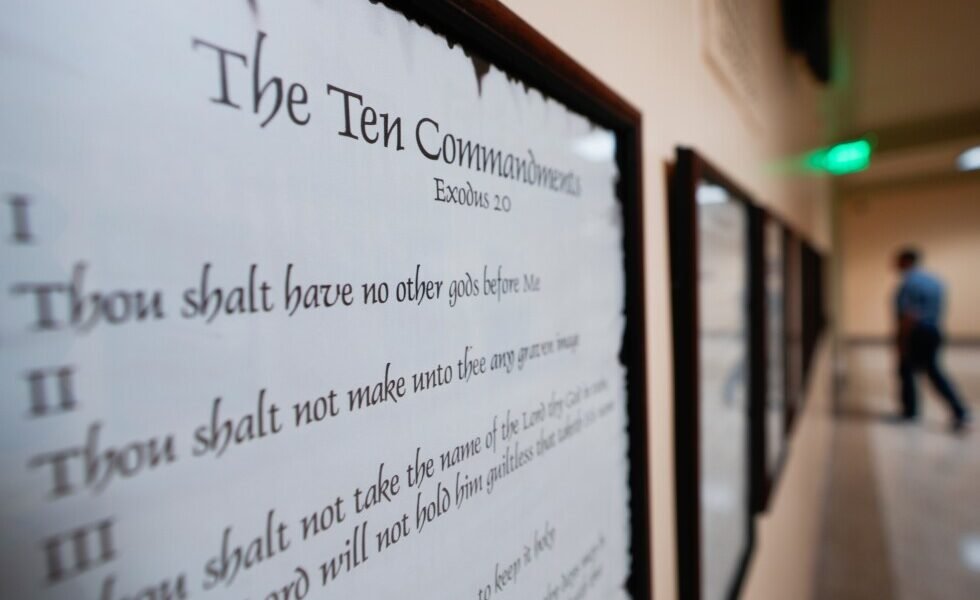 The Ten Commandments
Exodus 20
I
Thou shalt have no other gods before Me
II
Thou shalt not make unto thee any graven image
III
Thou shalt not take the name of the Lord thy God in
Lord will not hold him guiltless that taketh His name
to keep it holy